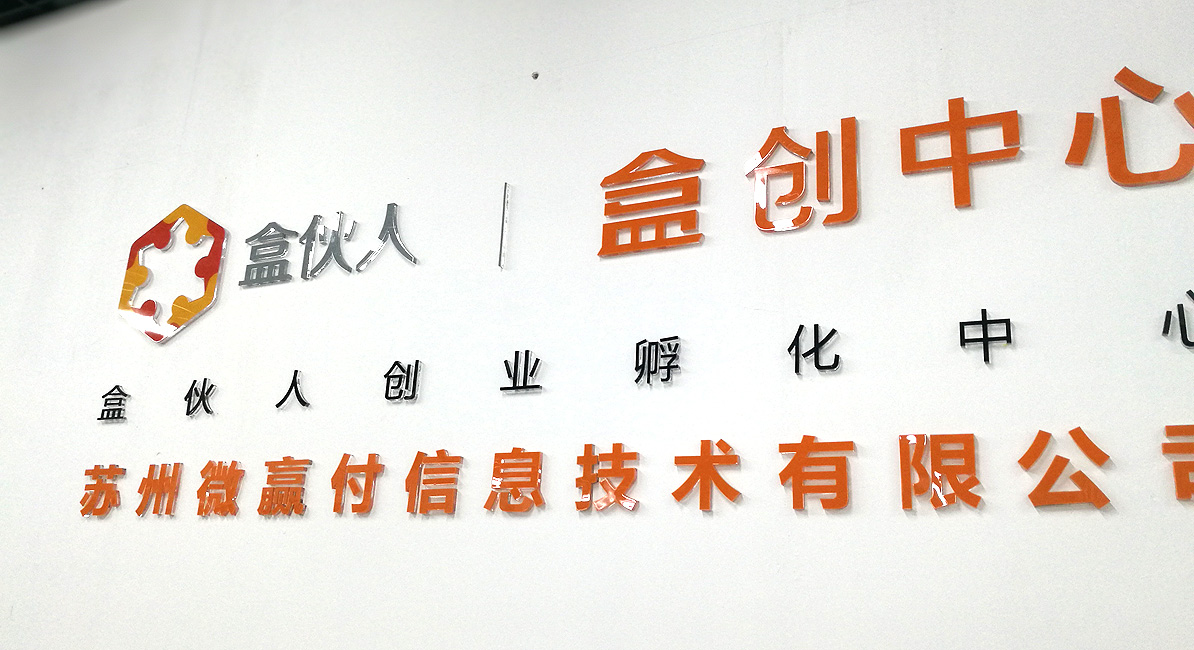 盒伙人 | 盒创中心
盒伙人创业孵化中心
苏州微赢付信息技术有限公司